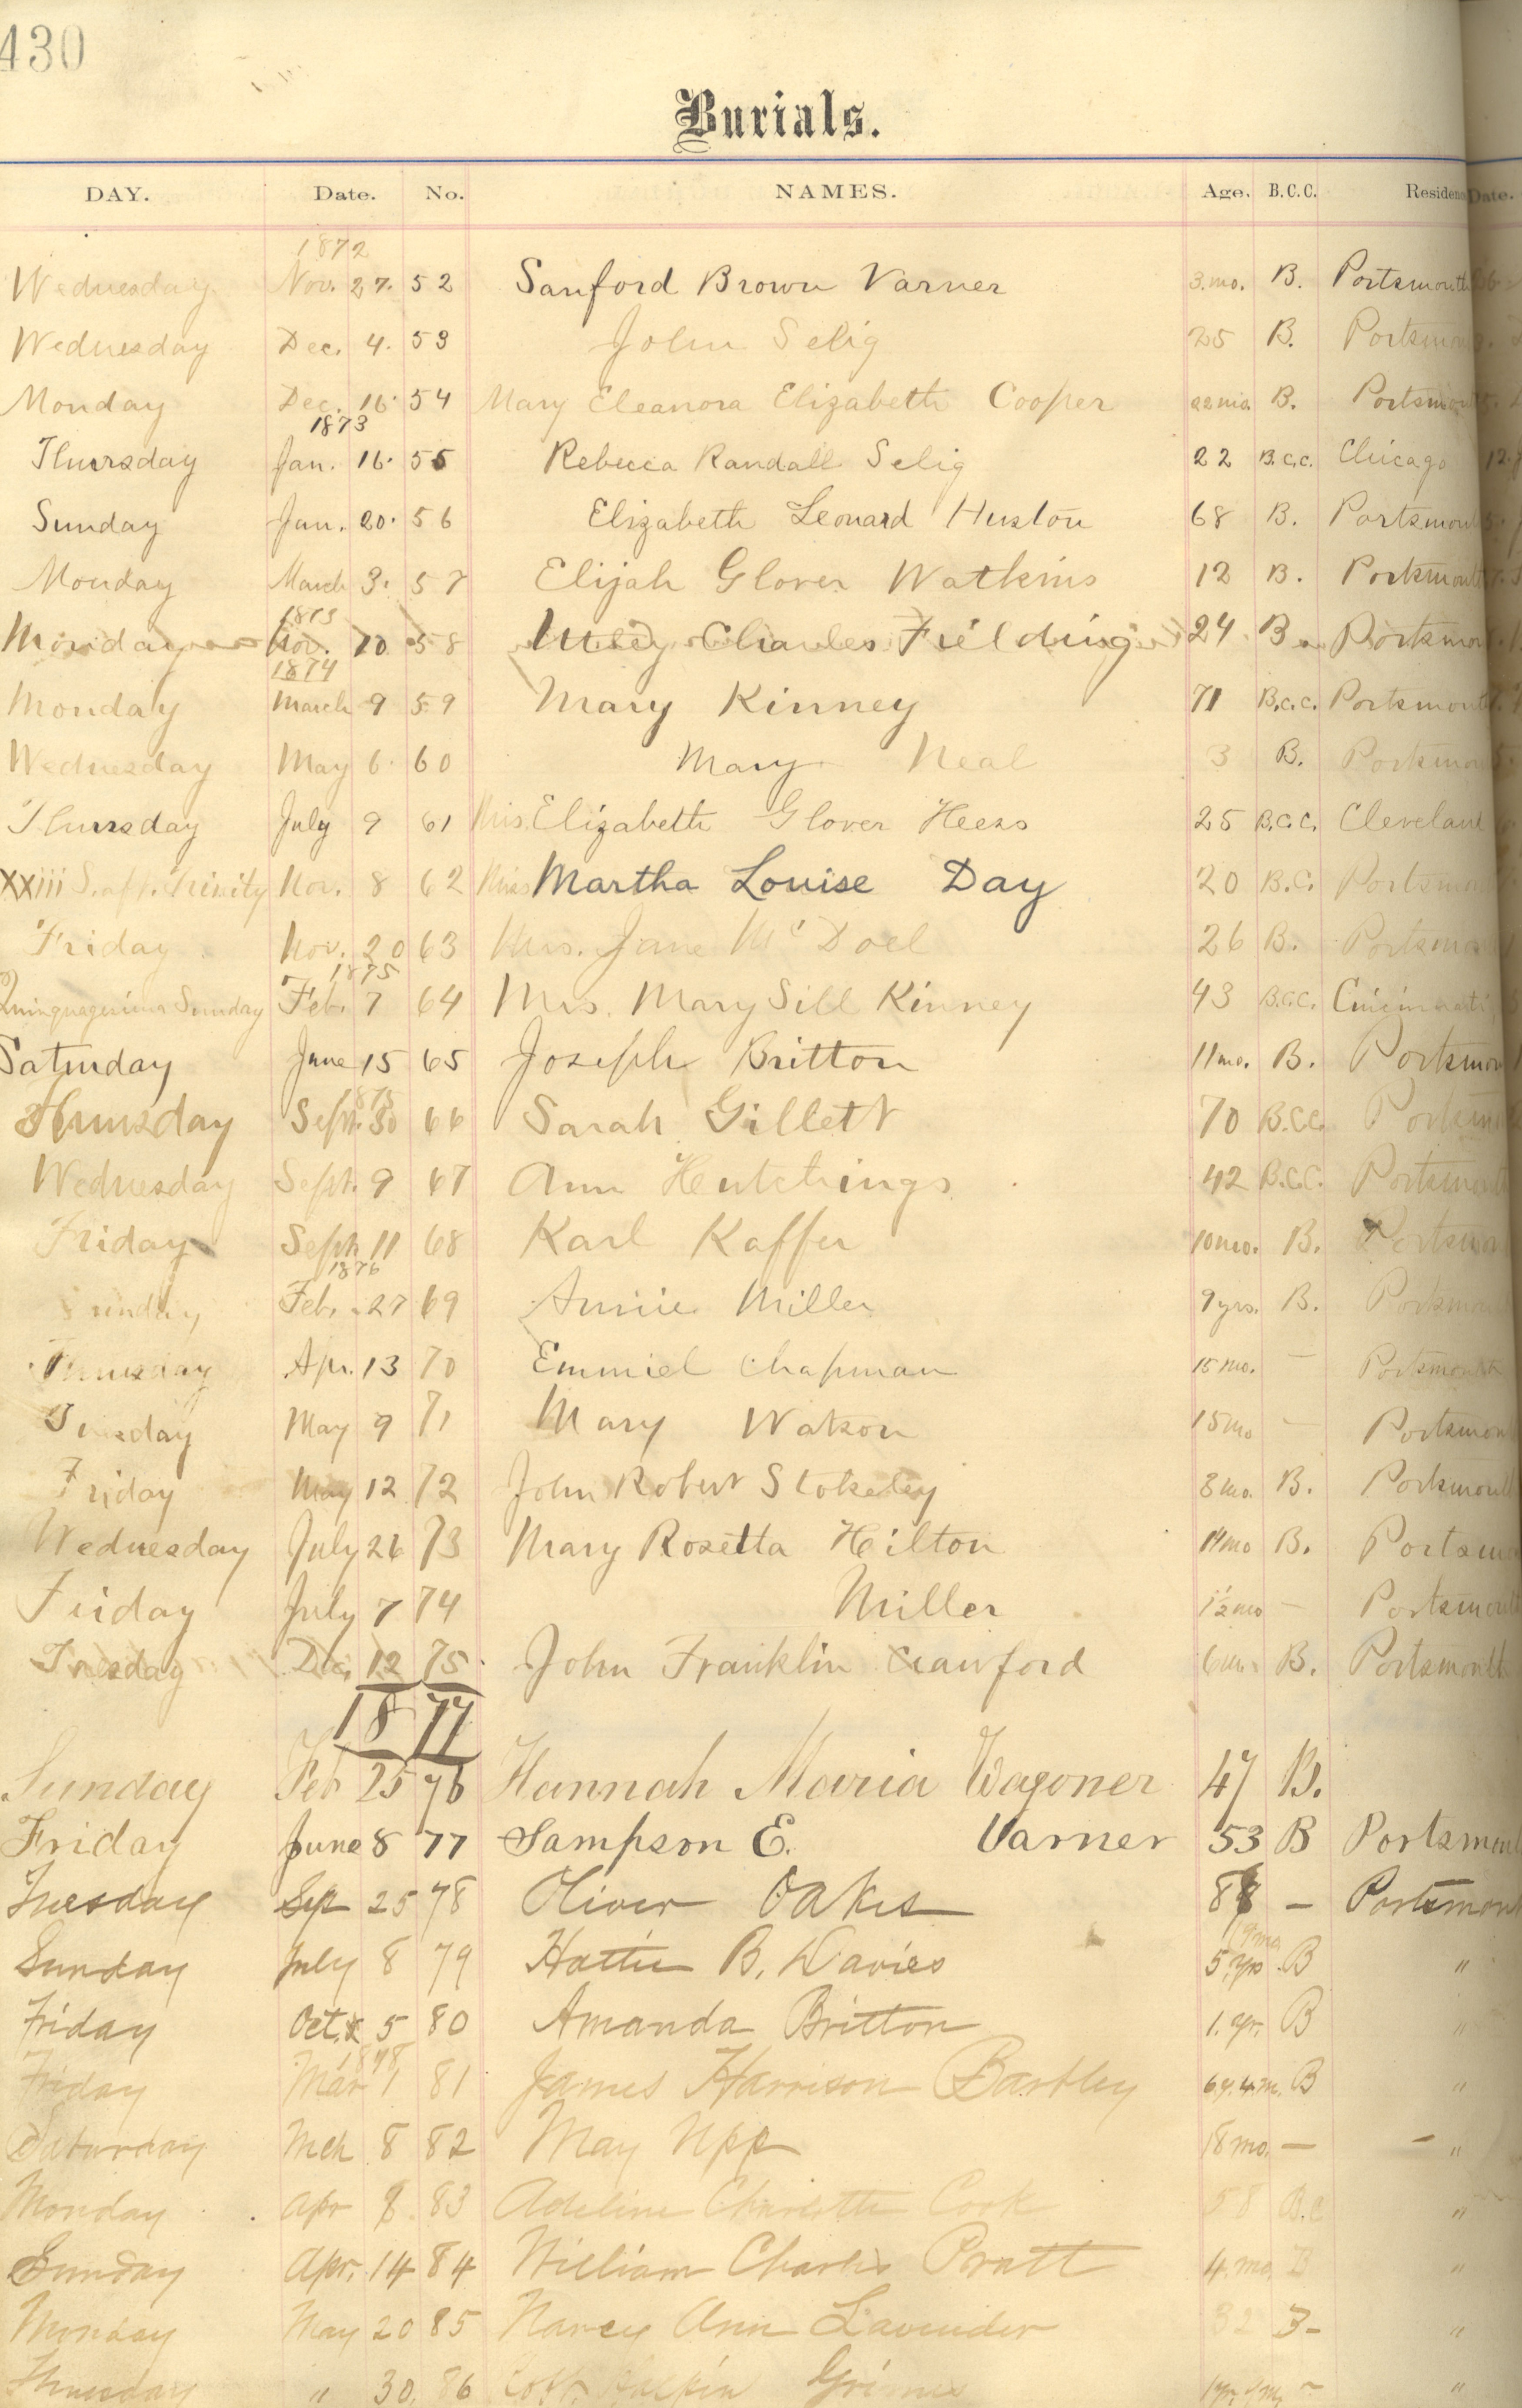 430
Burials.
DAY. Date. No. NAMES. Age. B.C.C. Residen Date.
1872
Wednesday Nov. 27. 52 Sanford Brown Varner 3. mo. B. Portsmouth
Wednesday Dec. 4. 53 John Selig 25 B. Portsmou
Monday Dec. 16. 54 Mary Eleanora Elizabeth Cooper 22 mo. B. Portsmou
1873
Thursday Jan. 16. 55 Rebecca Randall Selig 22 B.C.C. Chicago
Sunday Jan. 20. 56 Elizabeth Leonard Huston 68 B. Portsmout
Monday March 3. 57 Elijah Glover Watkins 12 B. Portsmouth
1873
Monday Nov. 10 58 Charles Fielding 24 B Portsmou
1874
Monday March 9 59 Mary Kinney 71 B.C.C. Portsmouth
Wednesday May 6. 60 Mary Neal 3 B. Portsmou
Thursday July 9 61 Mrs. Elizabeth Glover Heess 25 B.C.C. Cleveland
XXiii S. aft. Trinity Nov. 8 62 Miss Martha Louise Day 20 B.C. Portsmou
Friday Nov. 20 63 Mrs. Jane McDoel 26 B. Portsmou
1875
Quinquagesima Sunday Feb. 7 64 Mrs. Mary Sill Kinney 43 B.C.C. Cincinnati
Saturday June 15 65 Joseph Britton 11 mo. B. Portsmou
1875
Thursday Sept. 30 66 Sarah Gillett 70 B.C.C. Portsmou
Wednesday Sept. 9 67 Ann Hutchings 42 B.C.C. Portsmouth
Friday Sept. 11 68 Karl Kaffer 10 mo. B. Portsmou
1876
Sunday Feb. 27 69 Annie Miller 9 yrs. B. Portsmout
Thursday Apr. 13 70 Emmiel Chapman 15 mo. — Portsmouth
Tuesday May 9 71 Mary Watson 15 mo — Portsmou
Friday May 12 72 John Robert Stokeley 8 mo. B. Portsmouth
Wednesday July 26 73 Mary Rosetta Hilton 14 mo B. Portsmou
Friday July 7 74 Miller 1½ mo — Portsmouth
Tuesday Dec. 12 75 John Franklin Crawford 6 m. B. Portsmouth
1877
Sunday Feb 25 76 Hannah Maria Wagoner 47 B.
Friday June 8 77 Sampson E. Varner 53 B Portsmout
Tuesday Sep 25 78 Oliver Oakes — Portsmout
Sunday July 8 79 Hattie B. Davies 5 yrs B "
Friday Oct. 5 80 Amanda Britton 1. yr. B "
1878
Friday Mar 1 81 James Harrison Bartley 6 y. 4 m. B "
Saturday Mch 8 82 May Upp 18 mo. — - "
Monday Apr 8. 83 Adeline Charlotte Cook 58 B.C "
Sunday Apr. 14 84 William Charles Pratt 4. mo. B "
Monday May 20 85 Nancy Ann Lavender 32 B- "
Thursday " 30. 86 Grimes "